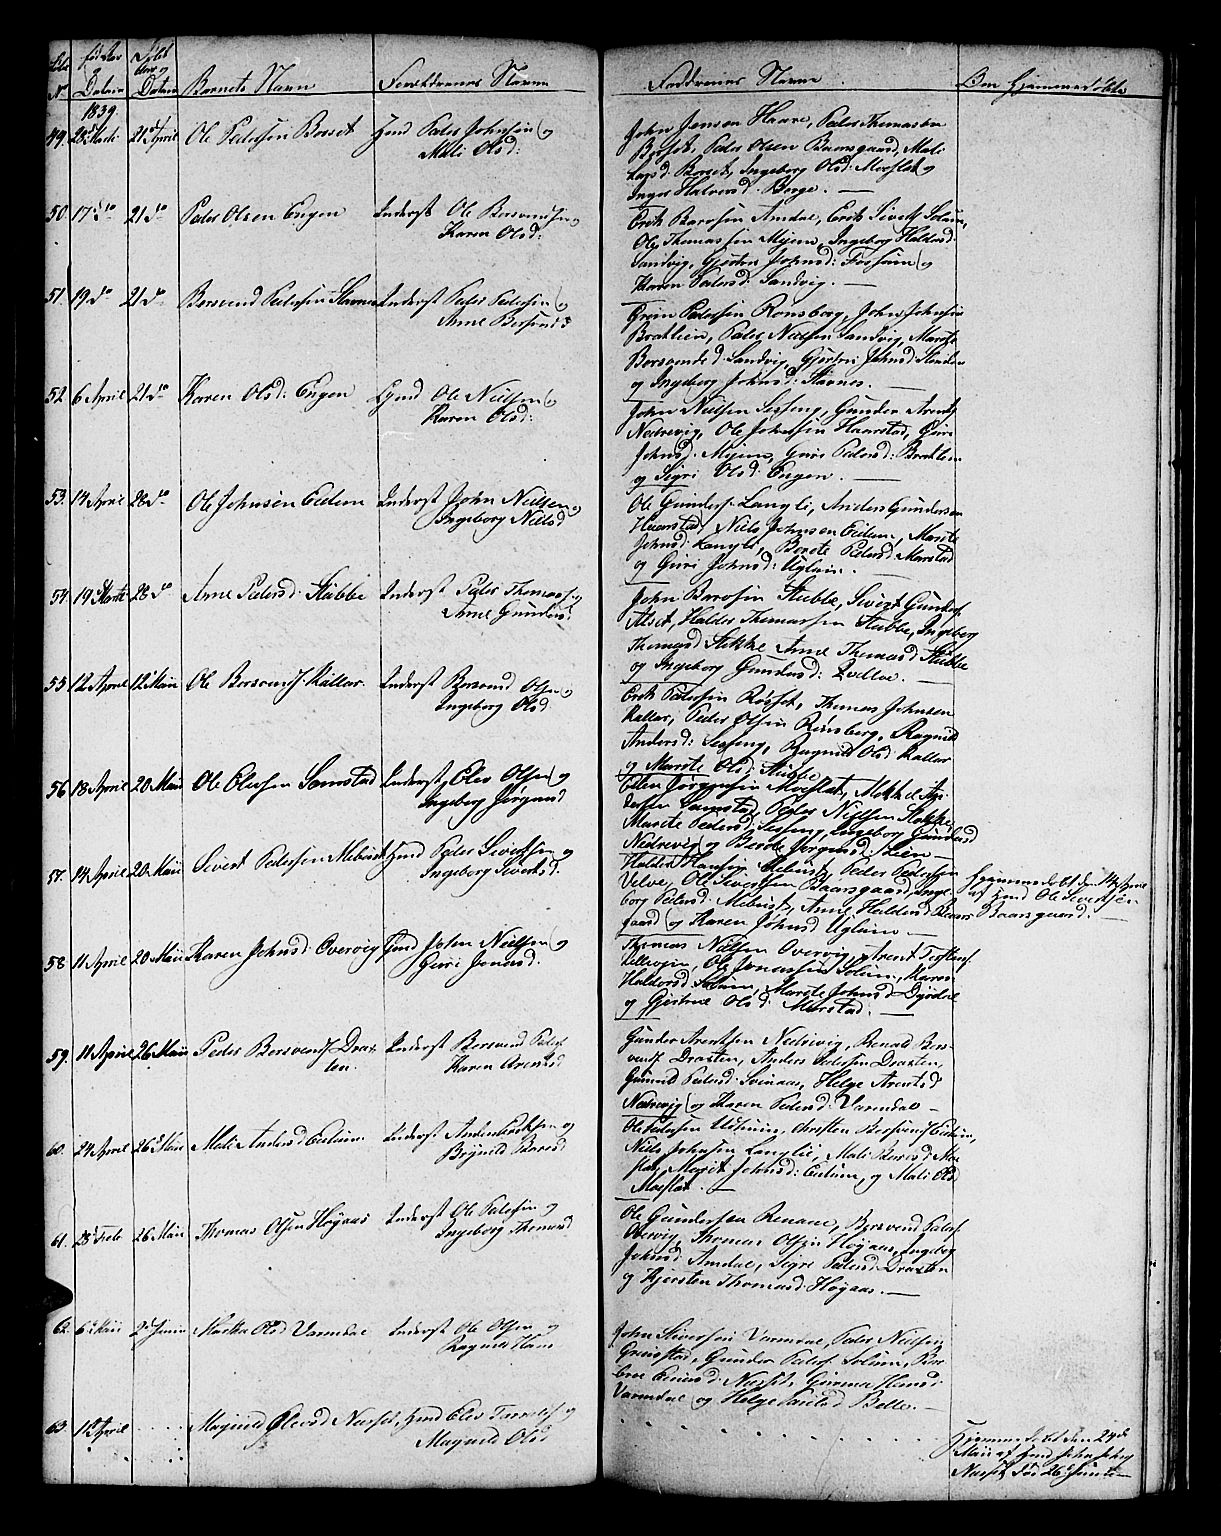 Født Aar
Daab
Datum Datum Barnets Navn Forældrenes Navne Faddernes Navne Om Hjemmedøbte
1839
49. 28 Marti 21 April Ole Pedersen Borset Gmd Peder Johnsen og
Mali Olsd:
John Jensen Haare, Peder Thomasen
Borset, Peder Olsen Baarsgaard, Mali
Larsd: Borset, Ingeborg Olsd: Moeslet og
Inger Halvorsd: Berge. —
50. 17 do 21 do Peder Olsen Engen Inderst Ole Borsvendsen og
Karen Olsd:
Erik BaroSen Amdal, Erik Sivertsen Solum,
Ole Thomassen Mijen, Ingeborg Haldosd
Sandvig, Gjertru Johnsd: Fossum og
Karen Pedersd: Sandvig. —
51. 19 do 21 do Borsvend Pedersen Stavnes Inderst Peder Pedersen og
Anne Borsvends
Pedersen Ronsberg, John Johnsen
Bratlien, Peder Nielsen Sandvig, Marite
Borsvendsd: Sandvig, Gjertru Johnsd:
og Ingeborg Johnsd: Stavnes. —
52. 6 April 21 do Karen Olsd: Engen Gmd Ole Nielsen og
Karen Olsd:
John Nielsen Sesseng, Gunder Arents
Nedrevig, Ole Johnsen Haarstad, Guri
Johnsd: Mijen, Guri Pedersd: Bratlien
og Sigri Olsd: Engen. —
53. 14 April 28 do Ole Johnsen Eidem Inderst John Nielsen og
Ingeborg Nielsd
Ole Gunders: Langli, Anders Gundersen
Haarstad, Niels Johnsen Eidum, Marite
Johnsd: Langli, Berete Pedersd: Marstad
og Guri Johnsd: Uglum. —
54. 19 Marti 28 do Anne Pedersd: Stubbe Inderst Peder Thomass: og
Anne Gundersd:
John BaroSen Stubbe, Sivert Gunders:
Alset, Haldo Thomassen Stubbe, Ingeborg
Thomasd Stokke Anne Thomasd Stubbe
og Ingeborg Gundersd: —
55. 12 April 12 Maii Ole Borsvends: Kallar Inderst Borsvend Olsen og
Ingeborg Olsd
Erik Pedersen Rosset, Thomas Johnsen
Kallar, Peder Olsen Rønsberg, Ragnild
Andersd: Sesseng, Ragnild Olsd Kallar
og Marite Olsd: Stubbe
56. 18 April 20 Maii Ole Elefsen Samstad Inderst, Elev Olsen og
Ingeborg Jørgensd
Eden Jørgensen Moeslet, Mikkel An-
dersen Samstad, Peder Nielsen Stokke
Marite Pedersd: Sesseng, Ingeborg Gundersd
Nedrevig og Berete Jørgensd: Lien —
57. 14 April 20 Maii Sivert Pedersen Mebust Gmd Peder Sivertsen og
Ingeborg Sivertsd:
Haldo Hansen Mebust, Peder Pedersen
Velve, Ole Sivertsen Baarsgaard, Inge-
borg Pedersd: Mebust, Anne Haldosd Baars-
gaard og Karen Johnsd Uglum —
Hjemmedøbt den 14 April
af Gmd Ole Sivertsen
Baarsgaard. —
58 11 April 20 Maii Karen Johnsd: Overvig Gmd John Nielsen og
Guri Jonasd.
Thomas Nielsen Overvig, Arent Torstens:
Lillevigen, Ole Jonassen Solum, Karen
Haldorsd Solum, Marite Johnsd Dyrdal
og Gjertrue Olsd: Marstad. —
59. 11 April 26 Maii Peder Borsvends: Drax-
ten.
Inderst Borsvend Peders:
Karen Arentsd
Gunder Arentsen Nedrevig, Renald Bors-
vends: Draxten, Anders Pedersen Draxten,
Gunild Pedersd: Svinaas, Helge Arentsd
Nedrevig og Karen Pedersd: Varmdal —
60. 24 April 26 Maii Mali Andersd Eidum Inderst Anders Eriksen og
Brynild Barosd
Ole Pedersen Udhuus, Christen Borsvends: Eidum,
Niels Johnsen Langlie, Mali Barosd: Moe-
slet, Marit Johnsd: Eidum, og Mali Olsd
Moeslet. —
61. 28 Feb 26 Maii Thomas Olsen Høgaas Inderst Ole Pedersen og
Ingeborg Thomasd
Ole Gundersen Renaae, Borsvend Peders:
Overvig, Thomas Olsen Høgaas, Ingeborg
Johnsd: Amdal, Sigre Pedersd: Draxten
og Kjersten Thomasd: Høgaas. —
62. 6 Maii 2 Junii Martha Olsd Varmdal Inderst Ole Olsen og
Ragnild Hans
John Siversen Varmdal, Peder Nielsen
Grønstad, Gunder Peders: Solum, Ber-
Nasset, Gunnild Hansd:
Varmdal og Helge Belle. —
63. 11 April . . . . . Magnild Elevsd Nasset, Gmd Elev og
Magnild Olsd
Hjemmedøbt den 24de
Maii af Gmd John Johns
Nasset, død 26 Junii —